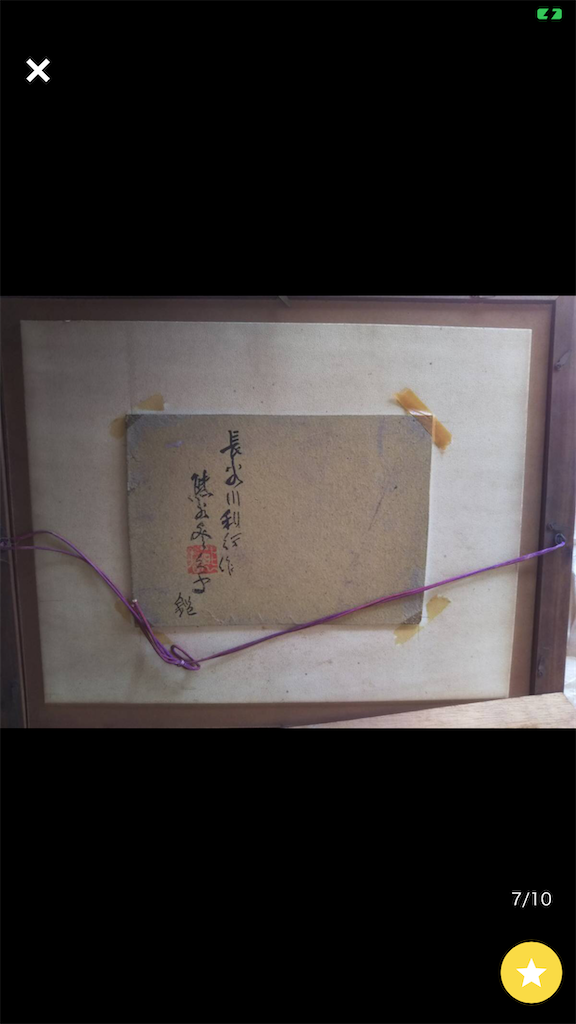 長谷川利行作
熊谷登久平
鑑
7/10